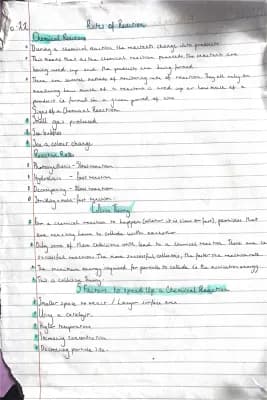 Rates of Reaction
Chemical Reactions
During a chemical reaction the reactants change into products.
This means that as the chemical reaction proceeds the reactants are
being used up and the products are being formed.
There are several methods of monitoring rate of reaction. They all rely on
measuring how much of a reactant is used up or how much of a
product is formed in a given period of time
Signs of a Chemical Reaction
Smell gas produced
See bubbles
See a colour change
Reaction Rate
Photosynthesis - Slow reaction
- fast reaction
Decomposing - Slow reaction
- fast reaction
Collision Theory
For a chemical reaction to happen (whether it is slow or fast), particles that
are reacting have to collide with eachother
Only some of these collisions will lead to a chemical reaction. These are
successful reactions. The more successful collisions, the faster the reaction rate.
The minimum energy required for particles to collide is the activation energy
This is Collision Theory.
5 Factors to speed Up a Chemical Reaction
Smaller space to react / Larger surface area
Using a Catalyst.
Higher temperature
Increasing concentration
Decreasing particle size.